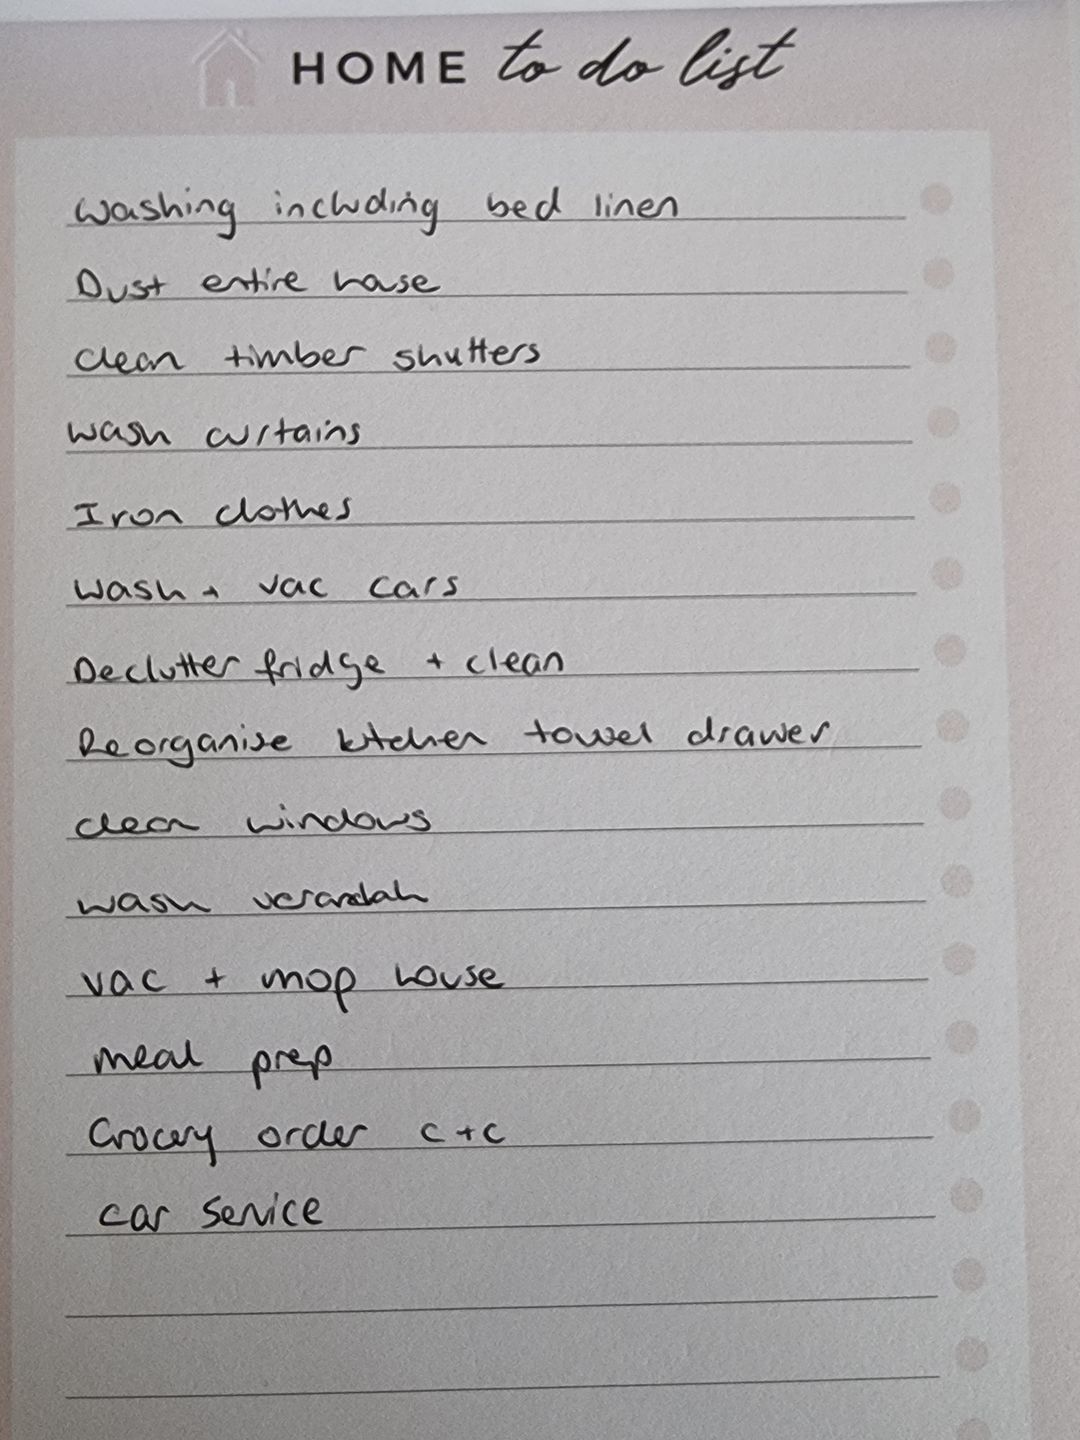 HOME to do list
Washing including bed linen
Dust entire house
Clean timber shutters
Wash curtains
Iron clothes
Wash + vac cars
Declutter fridge + clean
Reorganise kitchen towel drawer
Clean windows
Wash verandah
Vac + mop house
Meal prep
Grocery order C+C
Car service